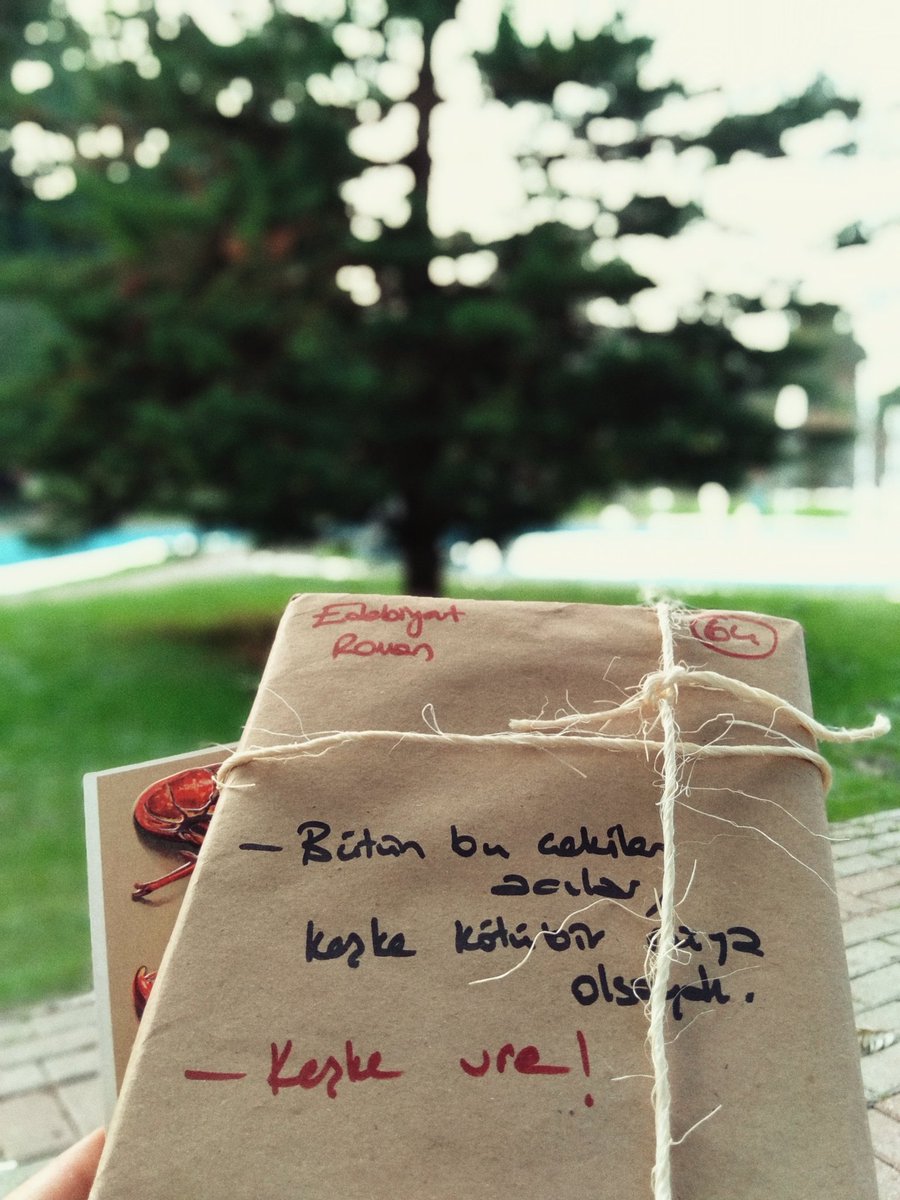 Edebiyat
Roman
64
- Bütün bu çekilen
acılar,
keşke kötü bir rüya
olsaydı.
- Keşke ure!